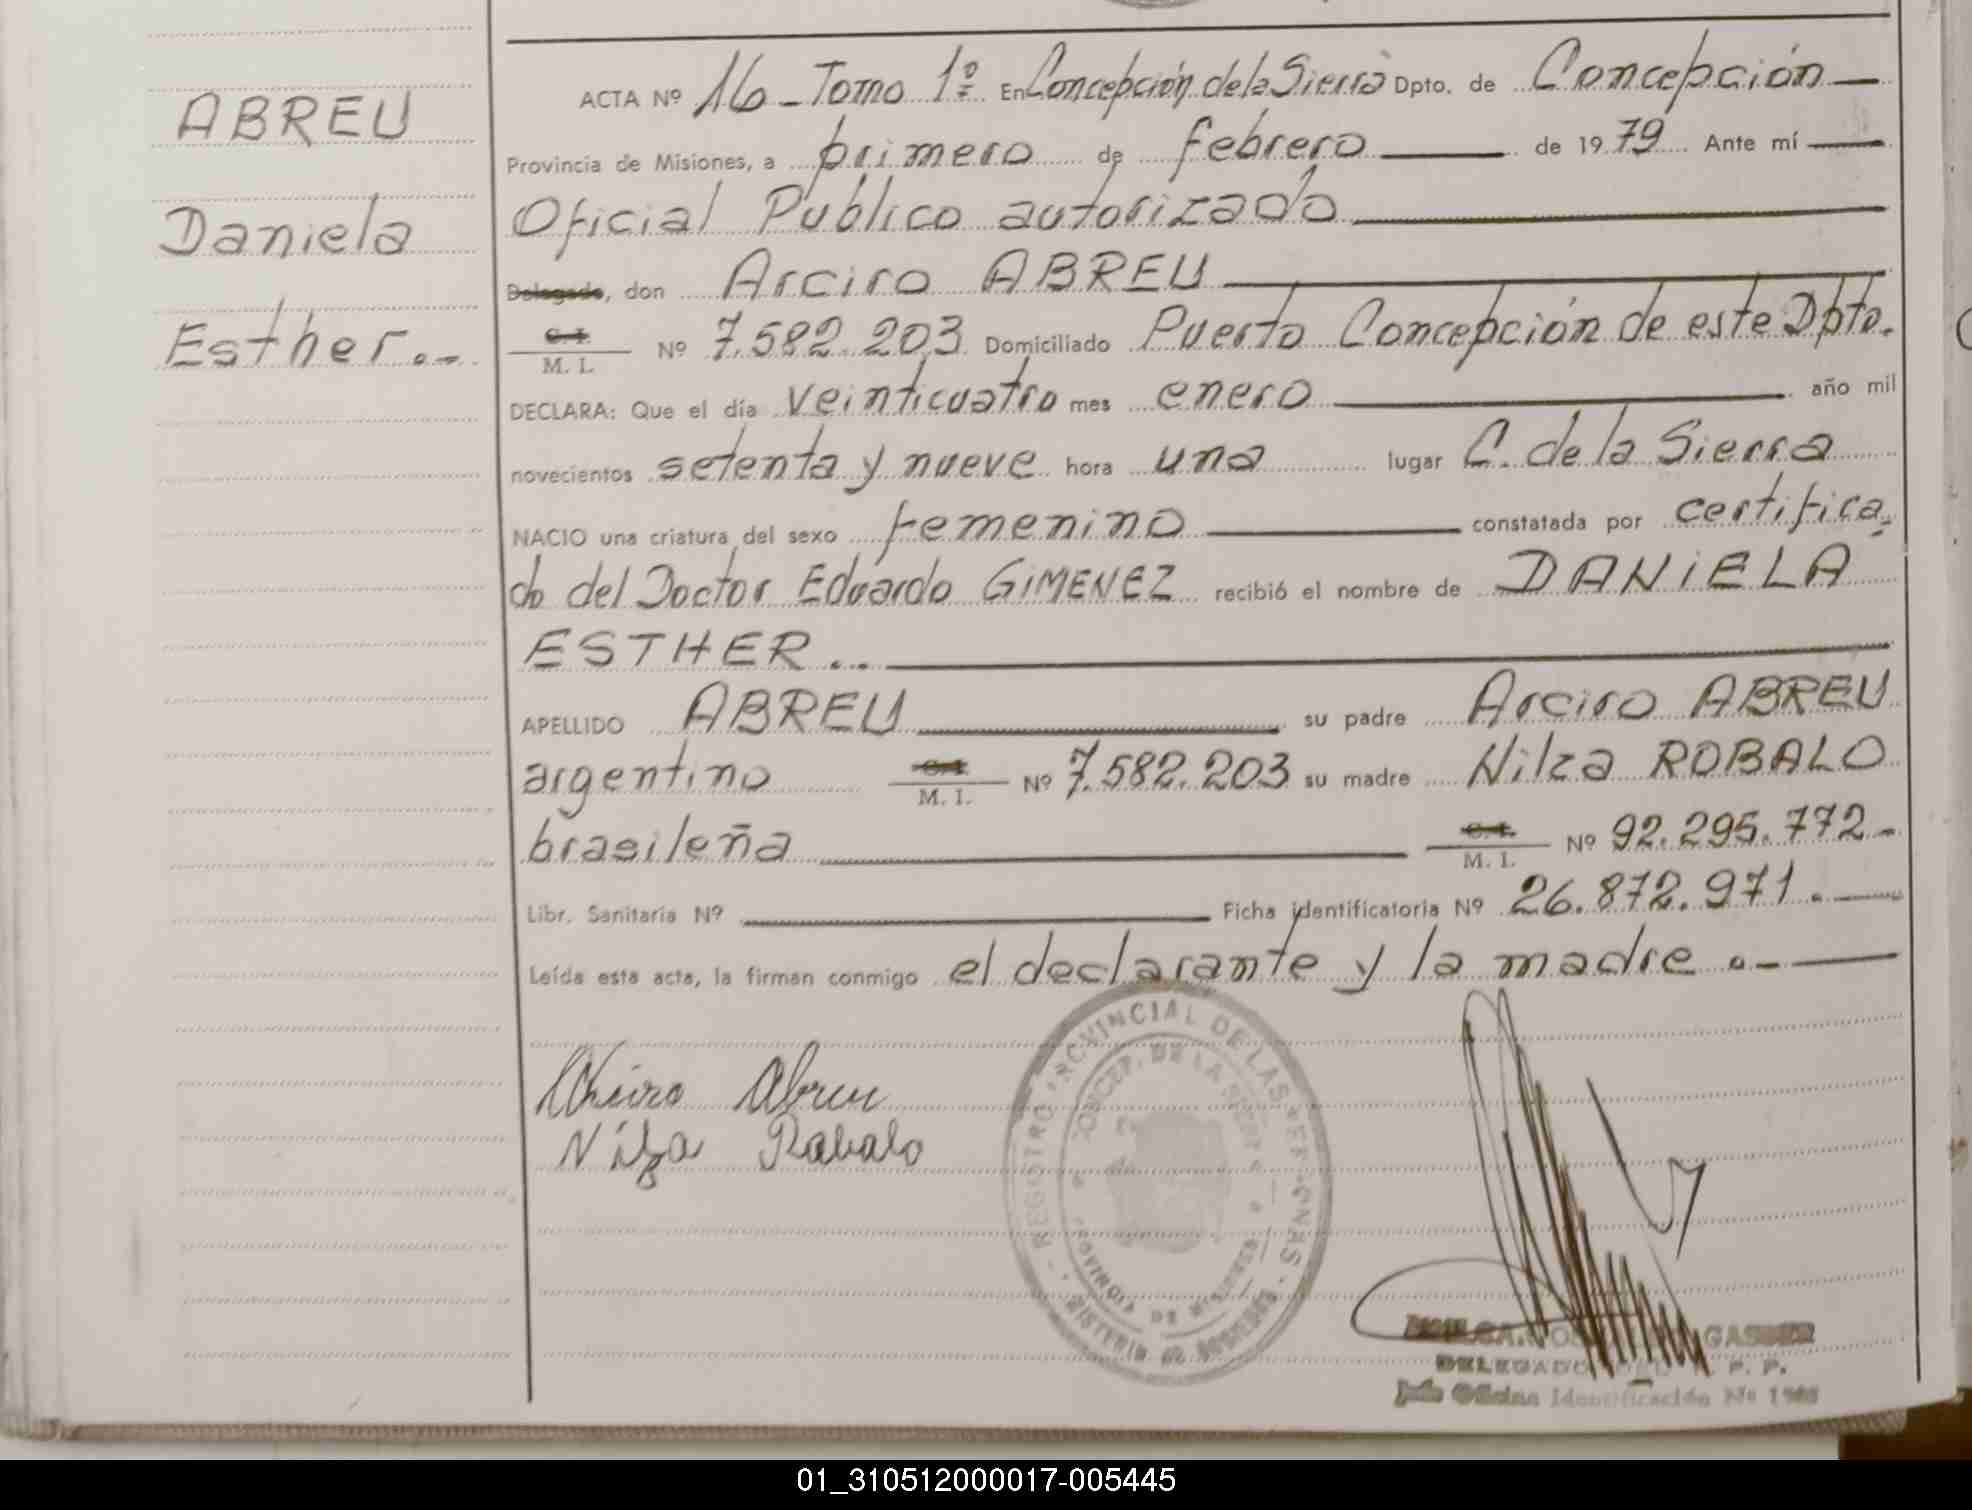 ABREU
Daniela
Esther.-
ACTA Nº 16 - Tomo 1º En Concepción de la Sierra Dpto. de Concepción
Provincia de Misiones, a primero de febrero de 1979 Ante mí
Oficial Publico autorizado
Delegado, don Arciro ABREU
C. I.
M. I. Nº 7.582.203 Domiciliado Puerto Concepción de este Dpto.
DECLARA: Que el día veinticuatro mes enero año mil
novecientos setenta y nueve hora una lugar C. de la Sierra
NACIO una criatura del sexo femenino constatada por certifica-
do del Doctor Eduardo GIMENEZ recibió el nombre de DANIELA
ESTHER...
APELLIDO ABREU su padre Arciro ABREU
argentino C. I. M. I. Nº 7.582.203 su madre Nilza ROBALO
brasileña C. I. M. I. Nº 92.295.772-
Libr. Sanitaria Nº Ficha identificatoria Nº 26.872.971.
Leída esta acta, la firman conmigo el declarante y la madre.-
Abreu
Nilza Rabalo
REGISTRO PROVINCIAL DE LAS PERSONAS
CONCEP. DE LA SIERRA
PROVINCIA DE MISIONES
MISTERIO DE GOBIERNO
DELEGADO P. P.
Jefe Oficina Identificación Nº
01_310512000017-005445